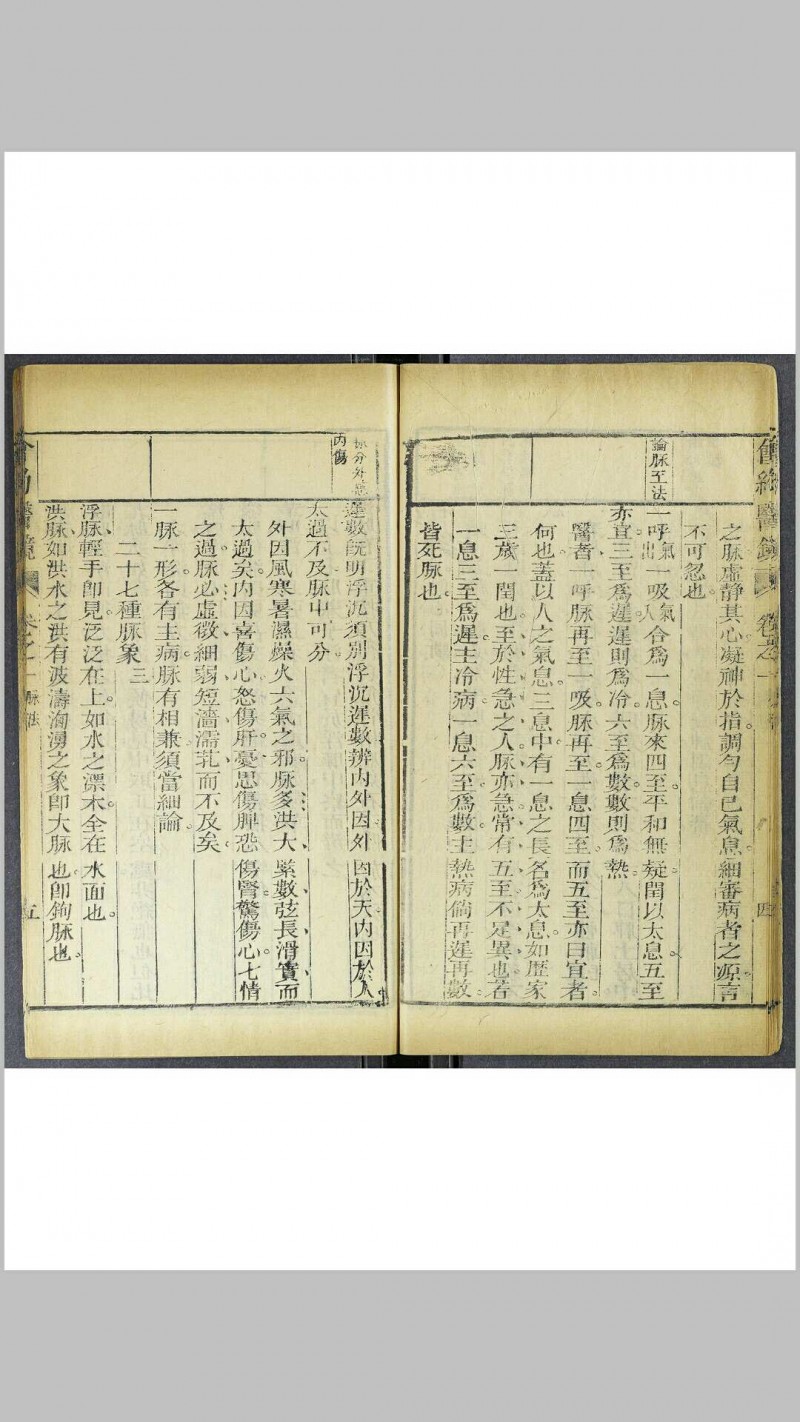 論脉至法
之脉虛静其心凝神於指調勻自己氣息細審病者之源言
不可忽也
一呼氣出一吸氣入合爲一息脉來四至平和無疑閏以太息五至
亦宜三至爲遲遲則爲冷六至爲數數則爲熱
醫者一呼脉再至一吸脉再至一息四至而五至亦曰宜者
何也蓋以人之氣息三息中有一息之長名爲太息如歷家
三歲一閏也至於性急之人脉亦急常有五至不足異也若
一息三至爲遲主冷病一息六至爲數主熱病倘再遲再數
皆死脉也
卷之一
四
脉分外感
内傷
遲數既明浮沉須別浮沉遲數辨内外因外因於天内因於人
太過不及脉中可分
外因風寒暑濕燥火六氣之邪脉多洪大緊數弦長滑實而
太過矣内因喜傷心怒傷肝憂思傷脾恐傷腎驚傷心七情
之過脉必虛微細弱短濇濡芤而不及矣
一脉一形各有主病脉有相兼須當細論
二十七種脉象三
浮脉輕手即見泛泛在上如水之漂木全在水面也
洪脉如洪水之洪有波濤洶湧之象即大脉也即鉤脉也
卷之一
脉法
五